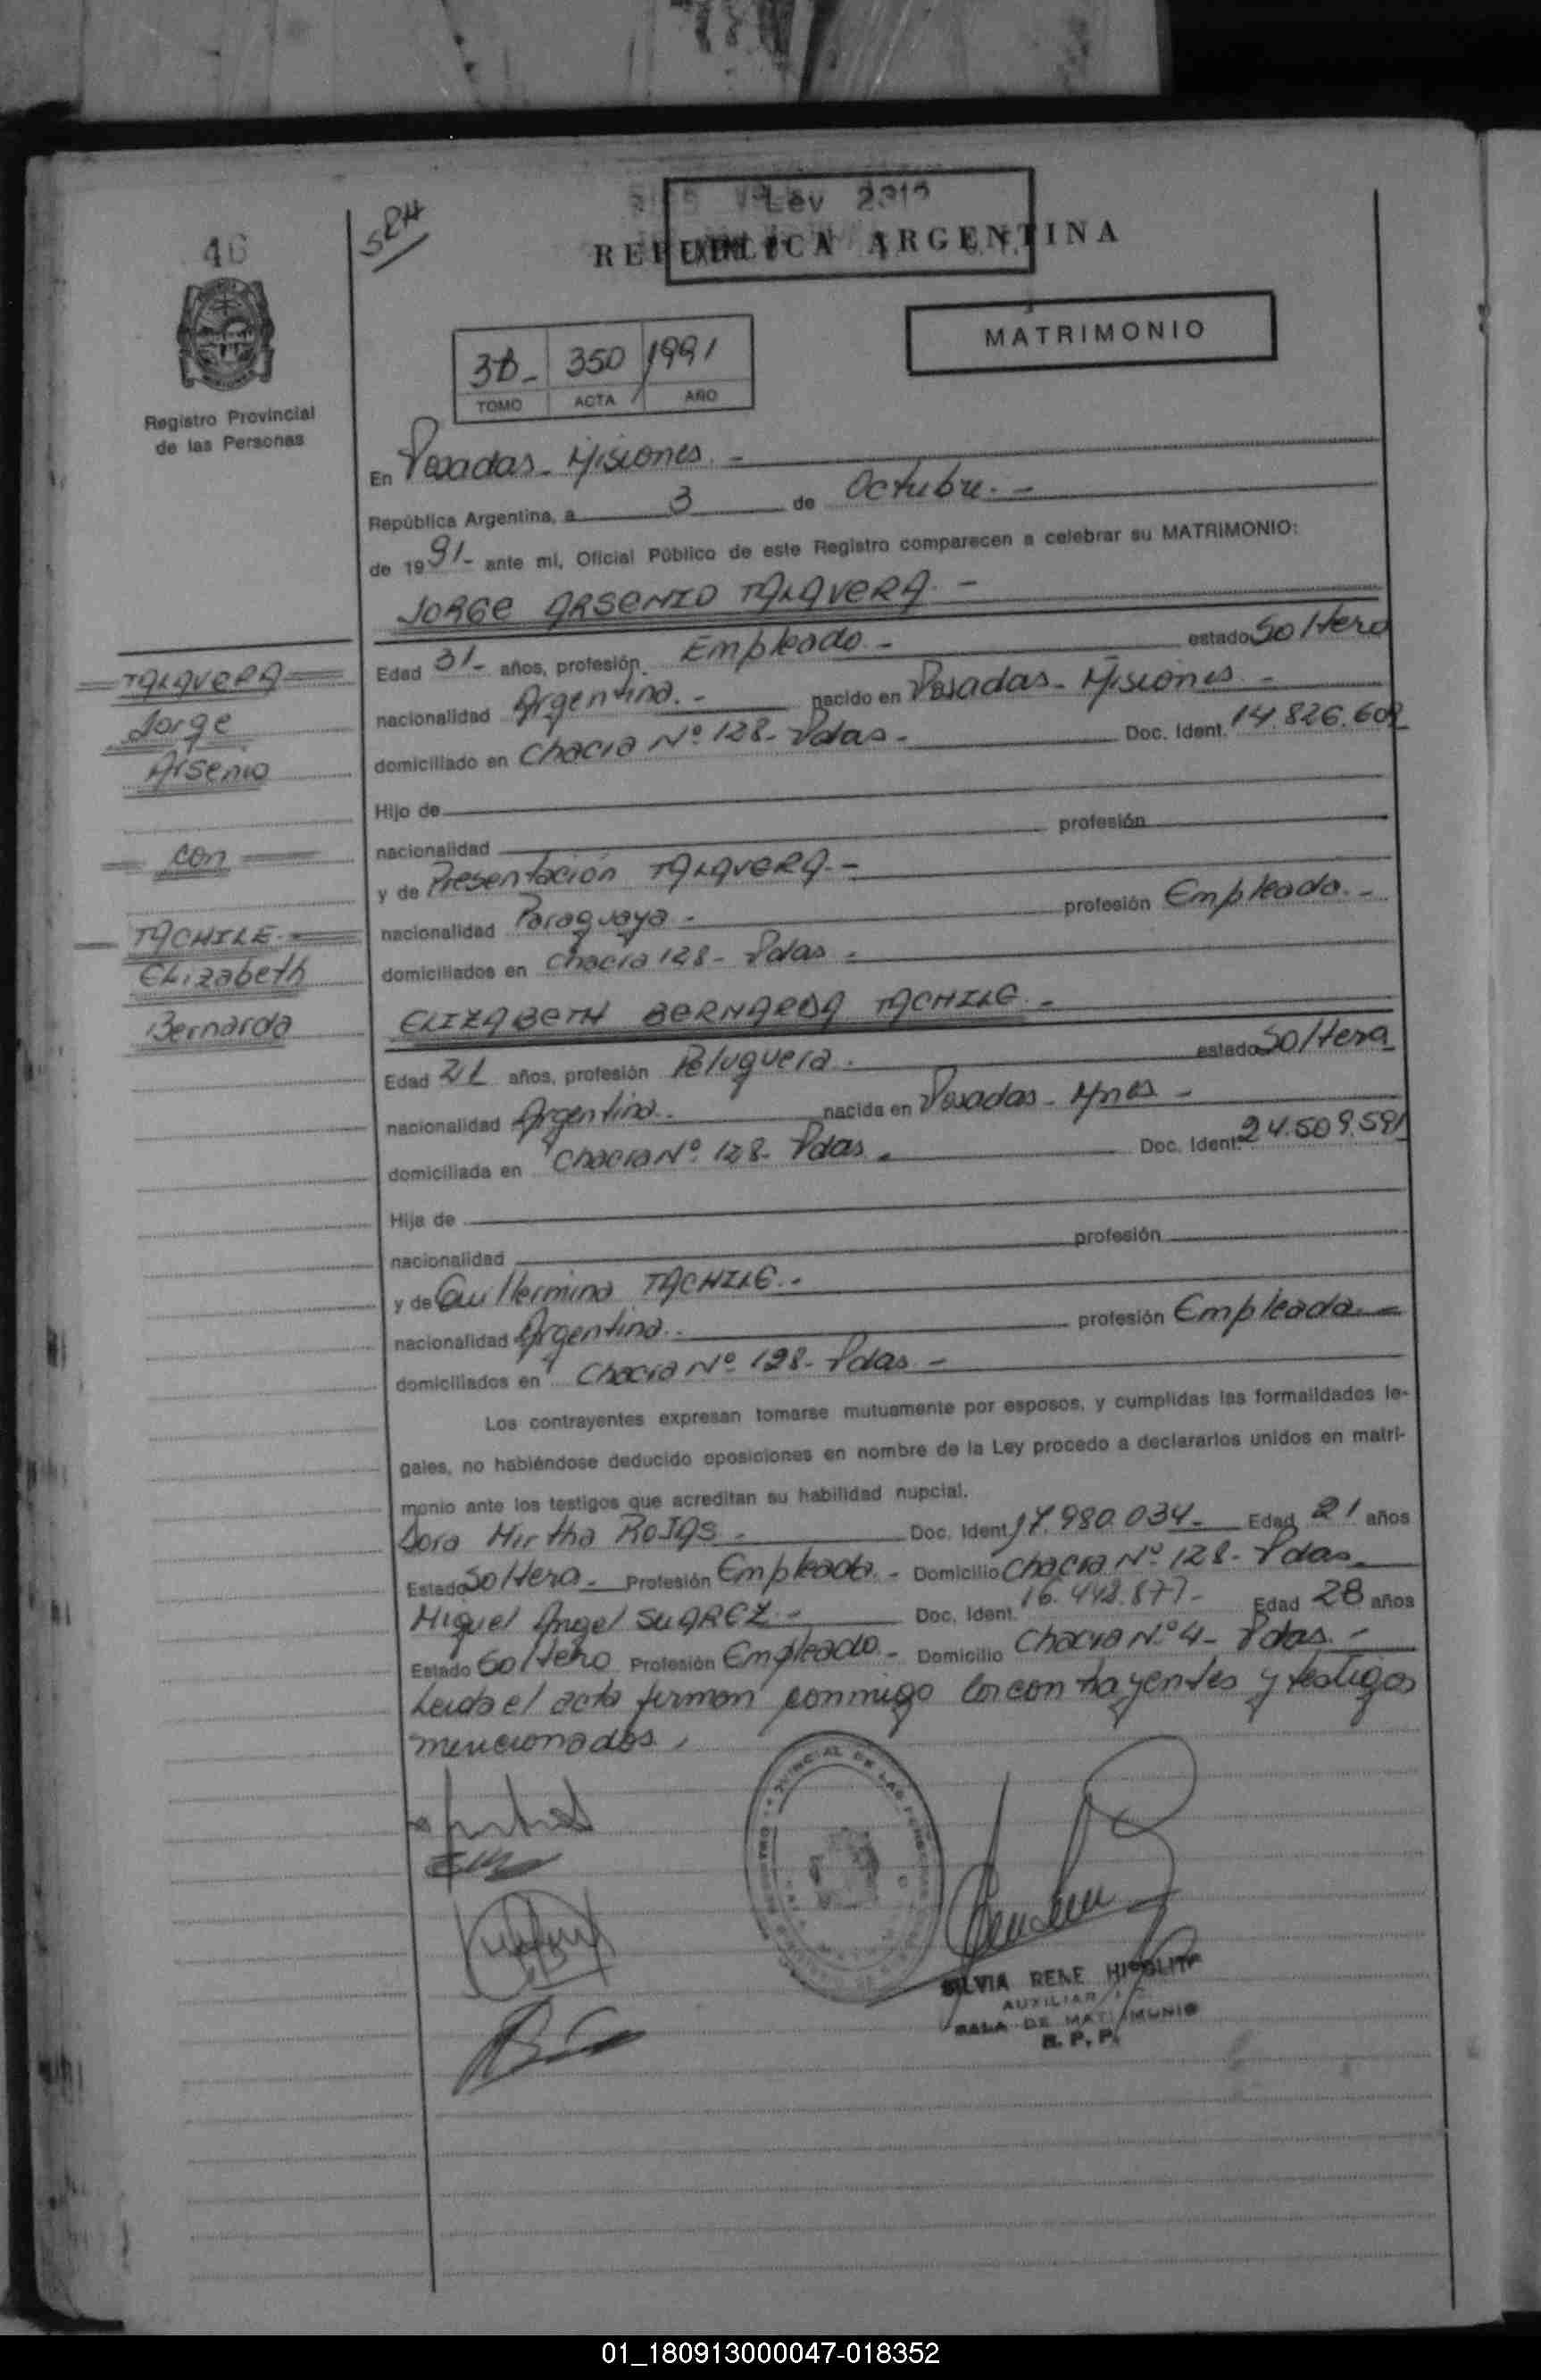 46
SRH
Ley 2310
REPUBLICA ARGENTINA
MATRIMONIO
3B- 350 / 1991
TOMO ACTA AÑO
Registro Provincial
de las Personas
En Posadas - Misiones. -
República Argentina, a 3 de Octubre. -
de 1991- ante mi, Oficial Público de este Registro comparecen a celebrar su MATRIMONIO:
JORGE ARSENIO TALAVERA. -
Edad 31- años, profesión Empleado - estado Soltero
nacionalidad Argentina. - nacido en Posadas - Misiones -
domiciliado en Chacra Nº 128- Pdas - Doc. Ident. 14.826.602
Hijo de
nacionalidad profesión
y de Presentación TALAVERA. -
nacionalidad Paraguaya - profesión Empleada. -
domiciliados en Chacra 128- Pdas -
TALAVERA
Jorge
Arsenio
con
TACHILE
Elizabeth
Bernarda
ELIZABETH BERNARDA TACHILE -
Edad 21 años, profesión Peluquera. estado Soltera
nacionalidad Argentina. nacida en Posadas - Mnes -
domiciliada en Chacra Nº 128- Pdas. Doc. Ident. 24.509.591
Hija de
nacionalidad profesión
y de Guillermina TACHILE. -
nacionalidad Argentina. profesión Empleada -
domiciliados en Chacra Nº 128- Pdas -
Los contrayentes expresan tomarse mutuamente por esposos, y cumplidas las formalidades le-
gales, no habiéndose deducido oposiciones en nombre de la Ley procedo a declararlos unidos en matri-
monio ante los testigos que acreditan su habilidad nupcial.
Dora Mirtha ROJAS - Doc. Ident. 17.980.034- Edad 21 años
Estado Soltera - Profesión Empleada. - Domicilio Chacra Nº 128- Pdas.
Miguel Angel SUAREZ - Doc. Ident. 16.448.877- Edad 28 años
Estado Soltero Profesión Empleado - Domicilio Chacra Nº 4- Pdas. -
Leida el acta firman conmigo los contrayentes y testigos
mencionados.
SILVIA RENE HIPOLITO
AUXILIAR
SALA DE MATRIMONIO
R. P. P.
01_180913000047-018352